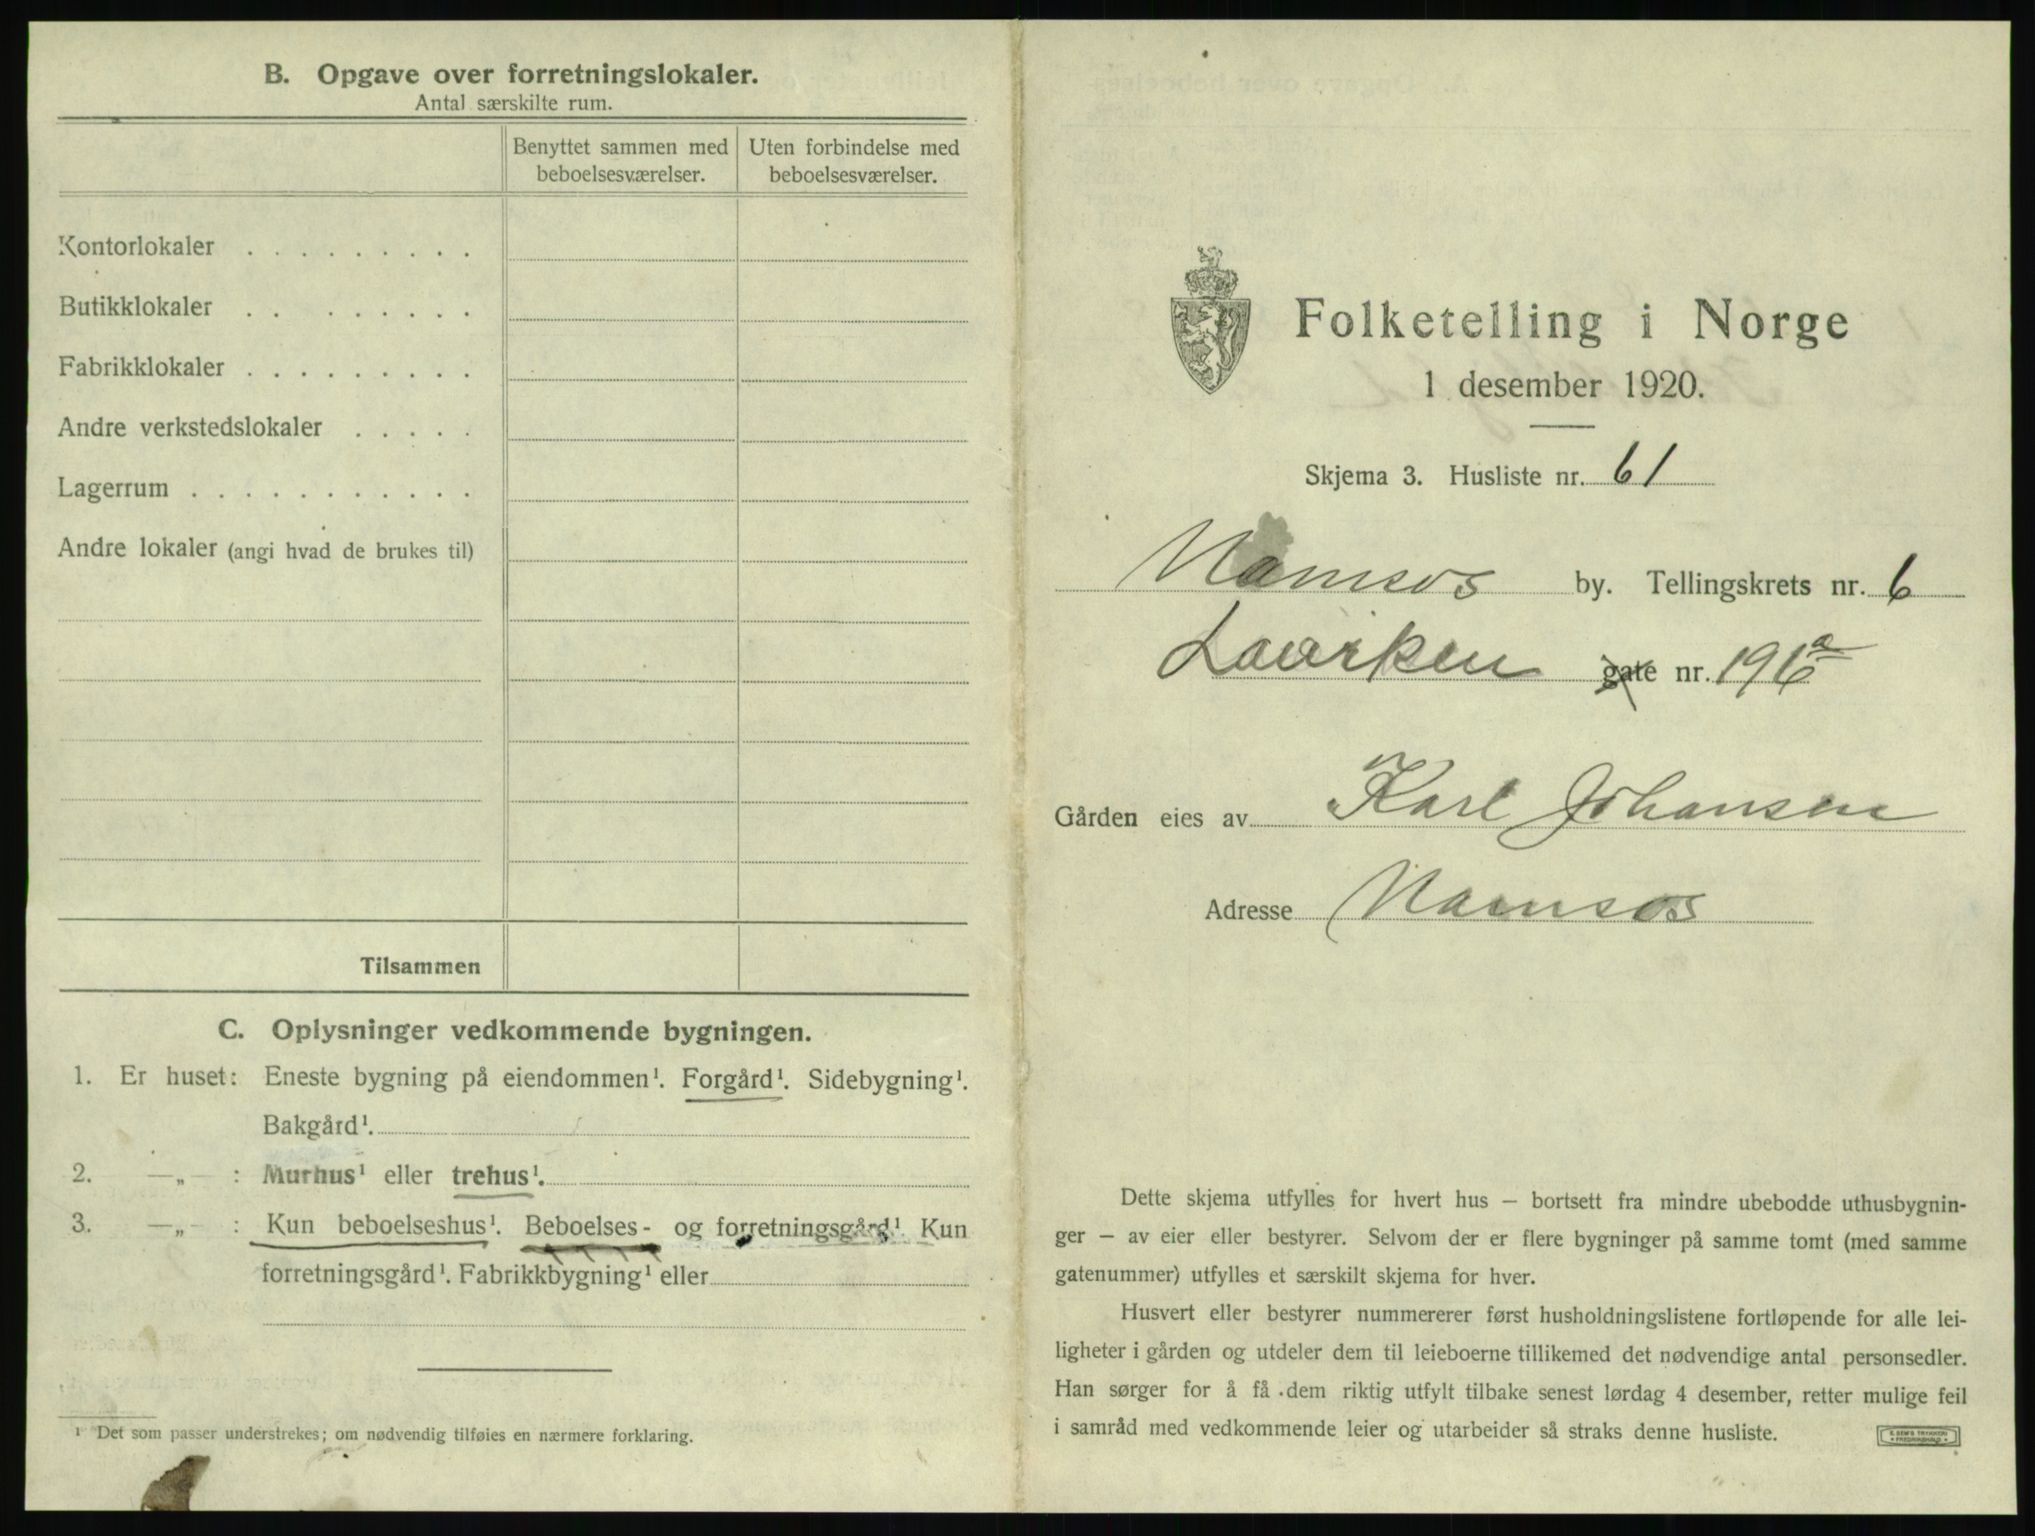 B. Opgave over forretningslokaler.
Antal særskilte rum.
Benyttet sammen med beboelsesværelser.
Uten forbindelse med beboelsesværelser.
Kontorlokaler . . . . . . . . .
Butikklokaler . . . . . . . .
Fabrikklokaler . . . . . . . . .
Andre verkstedslokaler . . . . .
Lagerrum . . . . . . . . . . .
Andre lokaler (angi hvad de brukes til)
Tilsammen
C. Oplysninger vedkommende bygningen.
1. Er huset: Eneste bygning på eiendommen¹. Forgård¹. Sidebygning¹.
Bakgård¹.
2. —„— : Murhus¹ eller trehus¹.
3. —„— : Kun beboelseshus¹. Beboelses- og forretningsgård¹. Kun
forretningsgård¹. Fabrikkbygning¹ eller
¹ Det som passer understrekes; om nødvendig tilføies en nærmere forklaring.
Folketelling i Norge
1 desember 1920.
Skjema 3. Husliste nr. 61
Namsos by. Tellingskrets nr. 6
gate nr. 196a
Gården eies av Karl Johansen
Adresse Namsos
Dette skjema utfylles for hvert hus — bortsett fra mindre ubebodde uthusbygnin-
ger — av eier eller bestyrer. Selvom der er flere bygninger på samme tomt (med samme
gatenummer) utfylles et særskilt skjema for hver.
Husvert eller bestyrer nummererer først husholdningslistene fortløpende for alle lei-
ligheter i gården og utdeler dem til leieboerne tillikemed det nødvendige antal personsedler.
Han sørger for å få dem riktig utfylt tilbake senest lørdag 4 desember, retter mulige feil
i samråd med vedkommende leier og utarbeider så straks denne husliste.